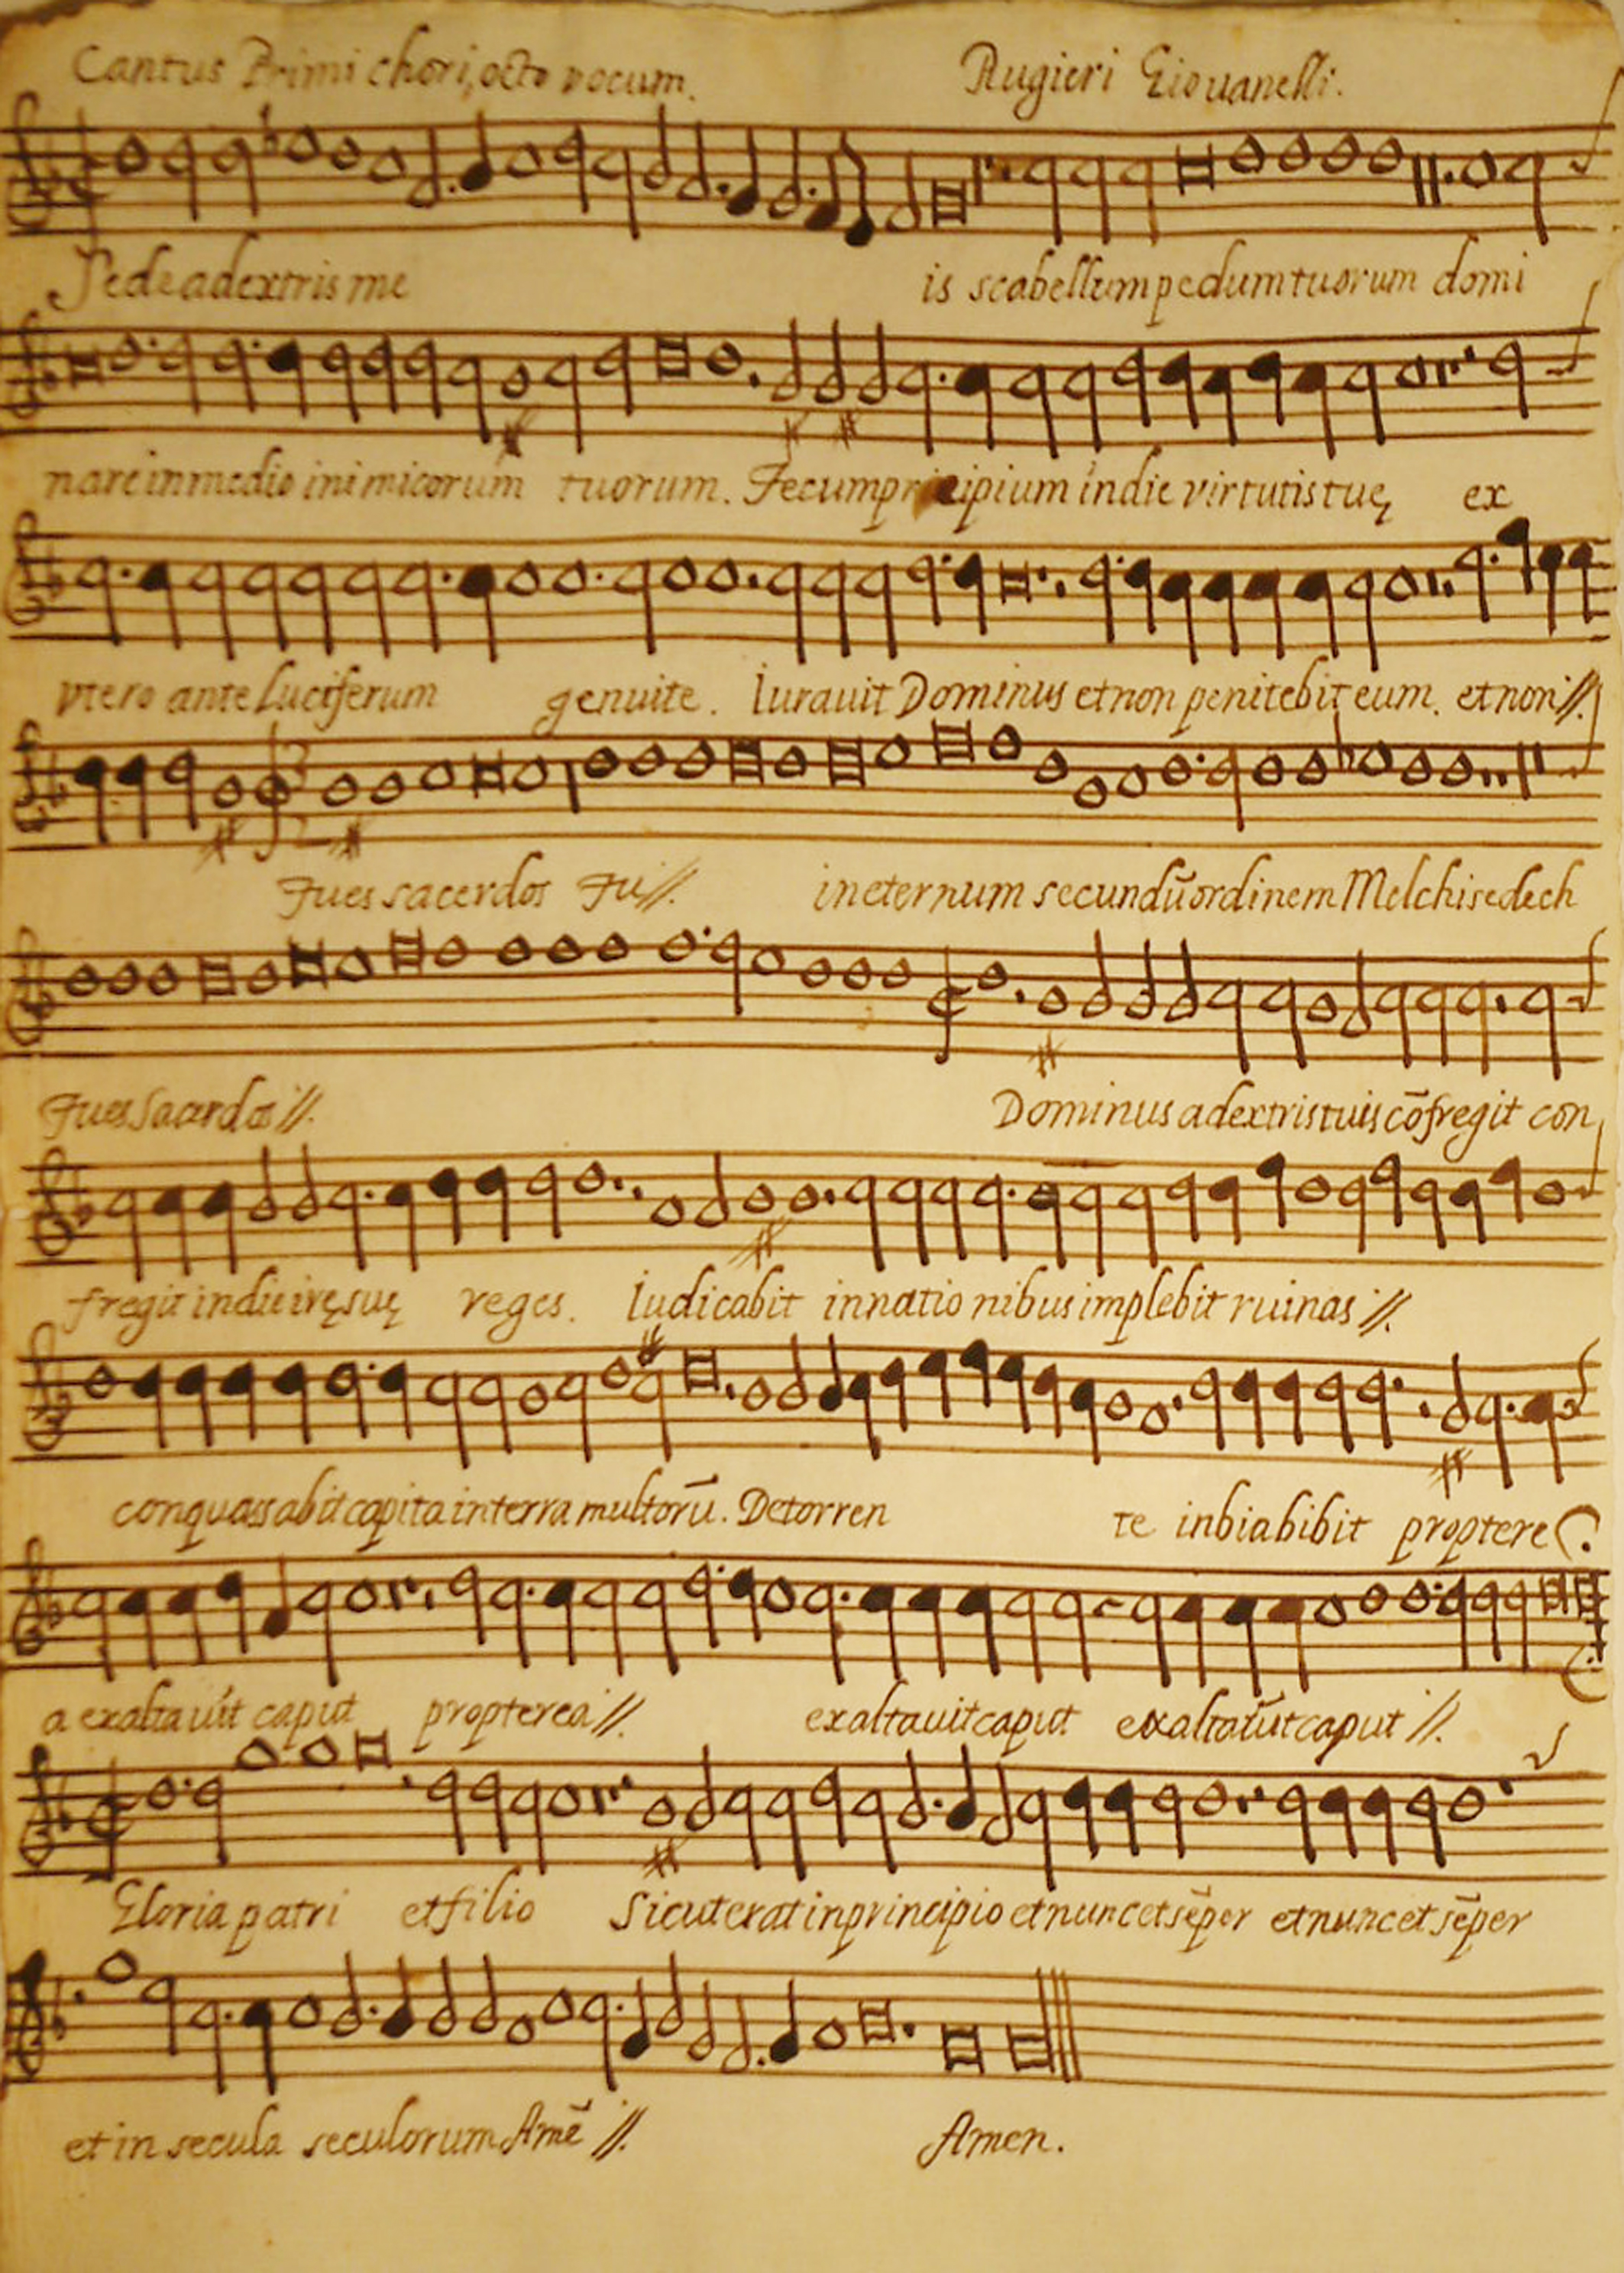 Cantus Primi chori, octo vocum. Rugieri Giovanelli.
Sede adextris me is scabellum pedum tuorum domi
nare in medio inimicorum tuorum. Tecum principium in die virtutis tuę ex
vtero ante Luciferum genui te. Iurauit Dominus et non penitebit eum. et non //.
Tu es sacerdos Tu //. in eternum secundū ordinem Melchisedech
Tu es Sacerdos //. Dominus adextris tuis cōfregit con
fregit in die irę suę reges. Iudicabit in nationibus implebit ruinas //.
conquassabit capita in terra multorū. De torren te in bia bibit proptere
a exaltauit caput propterea //. exaltauit caput exaltauit caput //.
Gloria patri et filio Sicut erat in principio et nunc et sēper et nunc et sēper
et in secula seculorum Amē //. Amen.